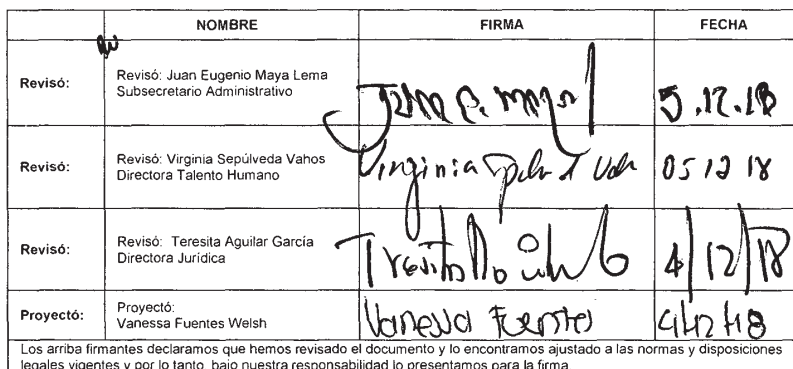 NOMBRE FIRMA FECHA
Revisó: Revisó: Juan Eugenio Maya Lema
Subsecretario Administrativo
5.12.18
Revisó: Revisó: Virginia Sepúlveda Vahos
Directora Talento Humano
Virginia 05 12 18
Revisó: Revisó: Teresita Aguilar García
Directora Jurídica
4/12/18
Proyectó: Proyectó:
Vanessa Fuentes Welsh
Vanessa Fuentes 4/12/18
Los arriba firmantes declaramos que hemos revisado el documento y lo encontramos ajustado a las normas y disposiciones
legales vigentes y por lo tanto, bajo nuestra responsabilidad lo presentamos para la firma.